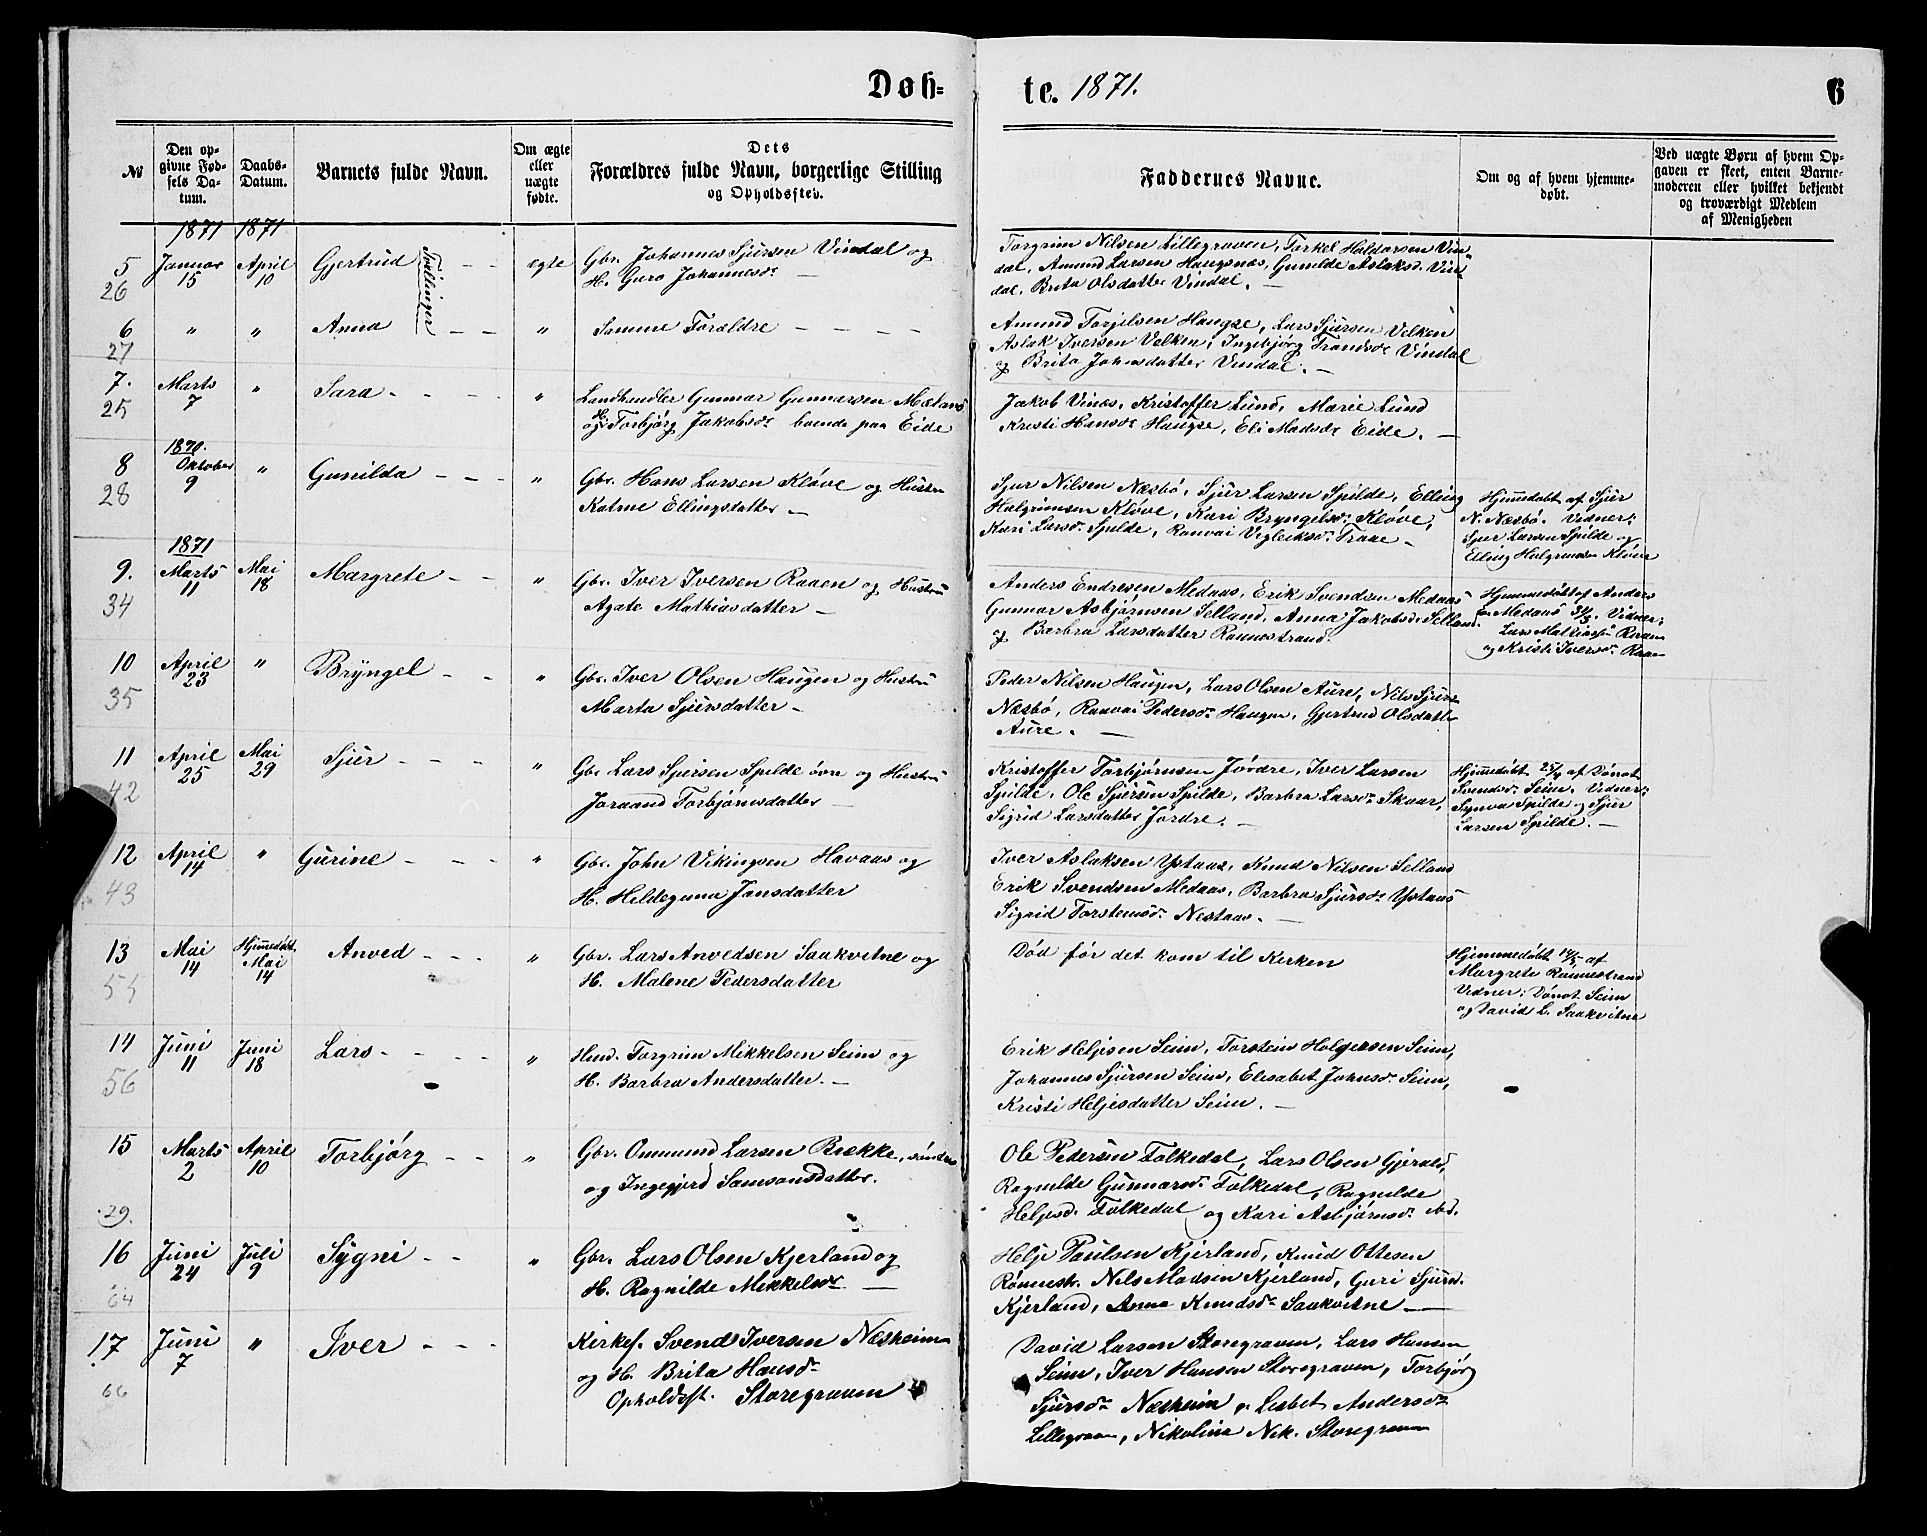 Døb=
te. 1871.
6
№
Den op-
givne Fød-
sels Da-
tum.
Daabs-
Datum.
Barnets fulde Navn.
Om ægte
eller
uægte
fødte.
Dets
Forældres fulde Navn, borgerlige Stilling
og Opholdssted.
Faddernes Navne.
Om og af hvem hjemme-
døbt.
Ved uægte Børn af hvem Op-
gaven er skeet, enten Barne-
moderen eller hvilket bekjendt
og troværdigt Medlem
af Menigheden
1871 1871
5 Januar April Gjertrud Tvillinger ægte Gbr. Johannes Sjursen Vindal og
26 15 10 H. Guro Johannesdr
Torgrim Nilsen Lillegraven, Torkel Haldorsen Vin-
dal, Amund Larsen Haugsnæs, Gunilde Aslaksd. Vin-
dal, Brita Olsdatter Vindal.
6 " " Anna " Samme Forældre
27
Amund Torjilsen Haugse, Lars Sjursen Velken
Aslak Iversen Velken, Ingebjørg Trondsdr Vindal
og Brita Johnsdatter Vindal.
7. Marts " Sara " Landhandler Gunnar Gunnarsen Mælans
25 7 og H. Torbjørg Jakobsdr boende paa Eide
Jakob Vines, Kristoffer Lund, Marie Lund
Kristi Hansdr Haugse, Eli Madsdr Eide.
1870.
8 Oktober " Gunilda " Gbr. Hans Larsen Kløve og Hustru
28 9 Katrine Ellingsdatter
Sjur Nilsen Næsbø, Sjur Larsen Spilde, Elling
Halgrimsen Kløve, Kari Bryngelsdr Kløve,
Kari Larsdr Spilde, Ranvai Vigleiksdr Traae
Hjemmedøbt af Sjur
N. Næsbø. Vidner:
Sjur Larsen Spilde og
Elling Halgrimsen Kløve
1871
9. Marts Mai Margrete " Gbr. Iver Iversen Raaen og Hustru
34 11 18 Agate Mathiasdatter
Anders Endresen Medaas, Erik Svendsen Medaas
Gunnar Asbjørnsen Selland, Anna Jakobsd. Selland
og Barbra Larsdatter Rønnestrand.
Hjemmedøbt af Anders
Medaas 31/3. Vidner:
Lars Mathiasen Raaen
og Kristi Iversdr Raaen
10 April " Bryngel " Gbr. Iver Olsen Haugen og Hustru
35 23 Marta Sjursdatter
Peder Nilsen Haugen, Lars Olsen Aure, Nils Sjurs.
Næsbø, Ranvai Pedersdr Haugen, Gjertrud Olsdatt.
Aure.
11 April Mai Sjur " Gbr Lars Sjursen Spilde øvre og Hustru
42 25 29 Joraand Torbjørnsdatter
Kristoffer Torbjørnsen Jordre, Iver Larsen
Spilde, Ole Sjursen Spilde, Barbra Larsdr Skaar,
Sigrid Larsdatter Jordre.
Hjemmedøbt 25/4 af Dønot
Svendsd. Seim. Vidner:
Synva Spilde og Sjur
Larsen Spilde.
12 April " Gurine " Gbr. John Vikingsen Havaas og
43 14 H. Hildeguna Jonsdatter
Iver Aslaksen Ystaas, Knud Nilsen Selland
Erik Svendsen Medaas, Barbra Sjursdr Ystaas
Sigrid Torstensdr Nestaas.
13 Mai Hjemmedøbt Anved " Gbr. Lars Anvedsen Saakvitne og
14 Mai 14 H. Malene Pedersdatter
Død før det kom til Kirken
Hjemmedøbt 14/5 af
Margrete Rønnestrand
Vidner: Dønot Seim
og David L. Saakvitne
14 Juni Juni Lars " Hmd. Torgrim Mikkelsen Seim og
56 11 18 H. Barbra Andersdatter.
Erik Heljesen Seim, Torstein Holgersen Seim,
Johannes Sjursen Seim, Elisabet Johnsdr Seim,
Kristi Heljesdatter Seim.
15 Marts April Torbjørg " Gbr. Ommund Larsen Brække, søndre
29. 2 10 og Ingegjerd Samsonsdatter.
Ole Pedersen Folkedal, Lars Olsen Gjerald,
Ragnilde Gunnarsdr Folkedal, Ragnilde
Heljesd. Folkedal og Kari Asbjørnsdr ibd.
16 Juni Juli Sygni " Gbr. Lars Olsen Kjerland og
64 24 9 H. Ragnilde Mikkelsdr
Helje Paulsen Kjerland, Knud Ottesen
Rønnestr. Nils Madsen Kjerland, Guri Sjursd.
Kjerland, Anna Knudsdr Saakvitne
17 Juni " Iver Kirkes. Svend Iversen Næsheim
66 7 og H. Brita Hansdr
Opholdsst. Storegraven
David Larsen Storegraven, Lars Hansen
Seim, Iver Hansen Storegraven, Torbjør
Sjursdr Næsheim, Lisbet Andersdr
Lillegraven, Nikoline Nik. Storegraven